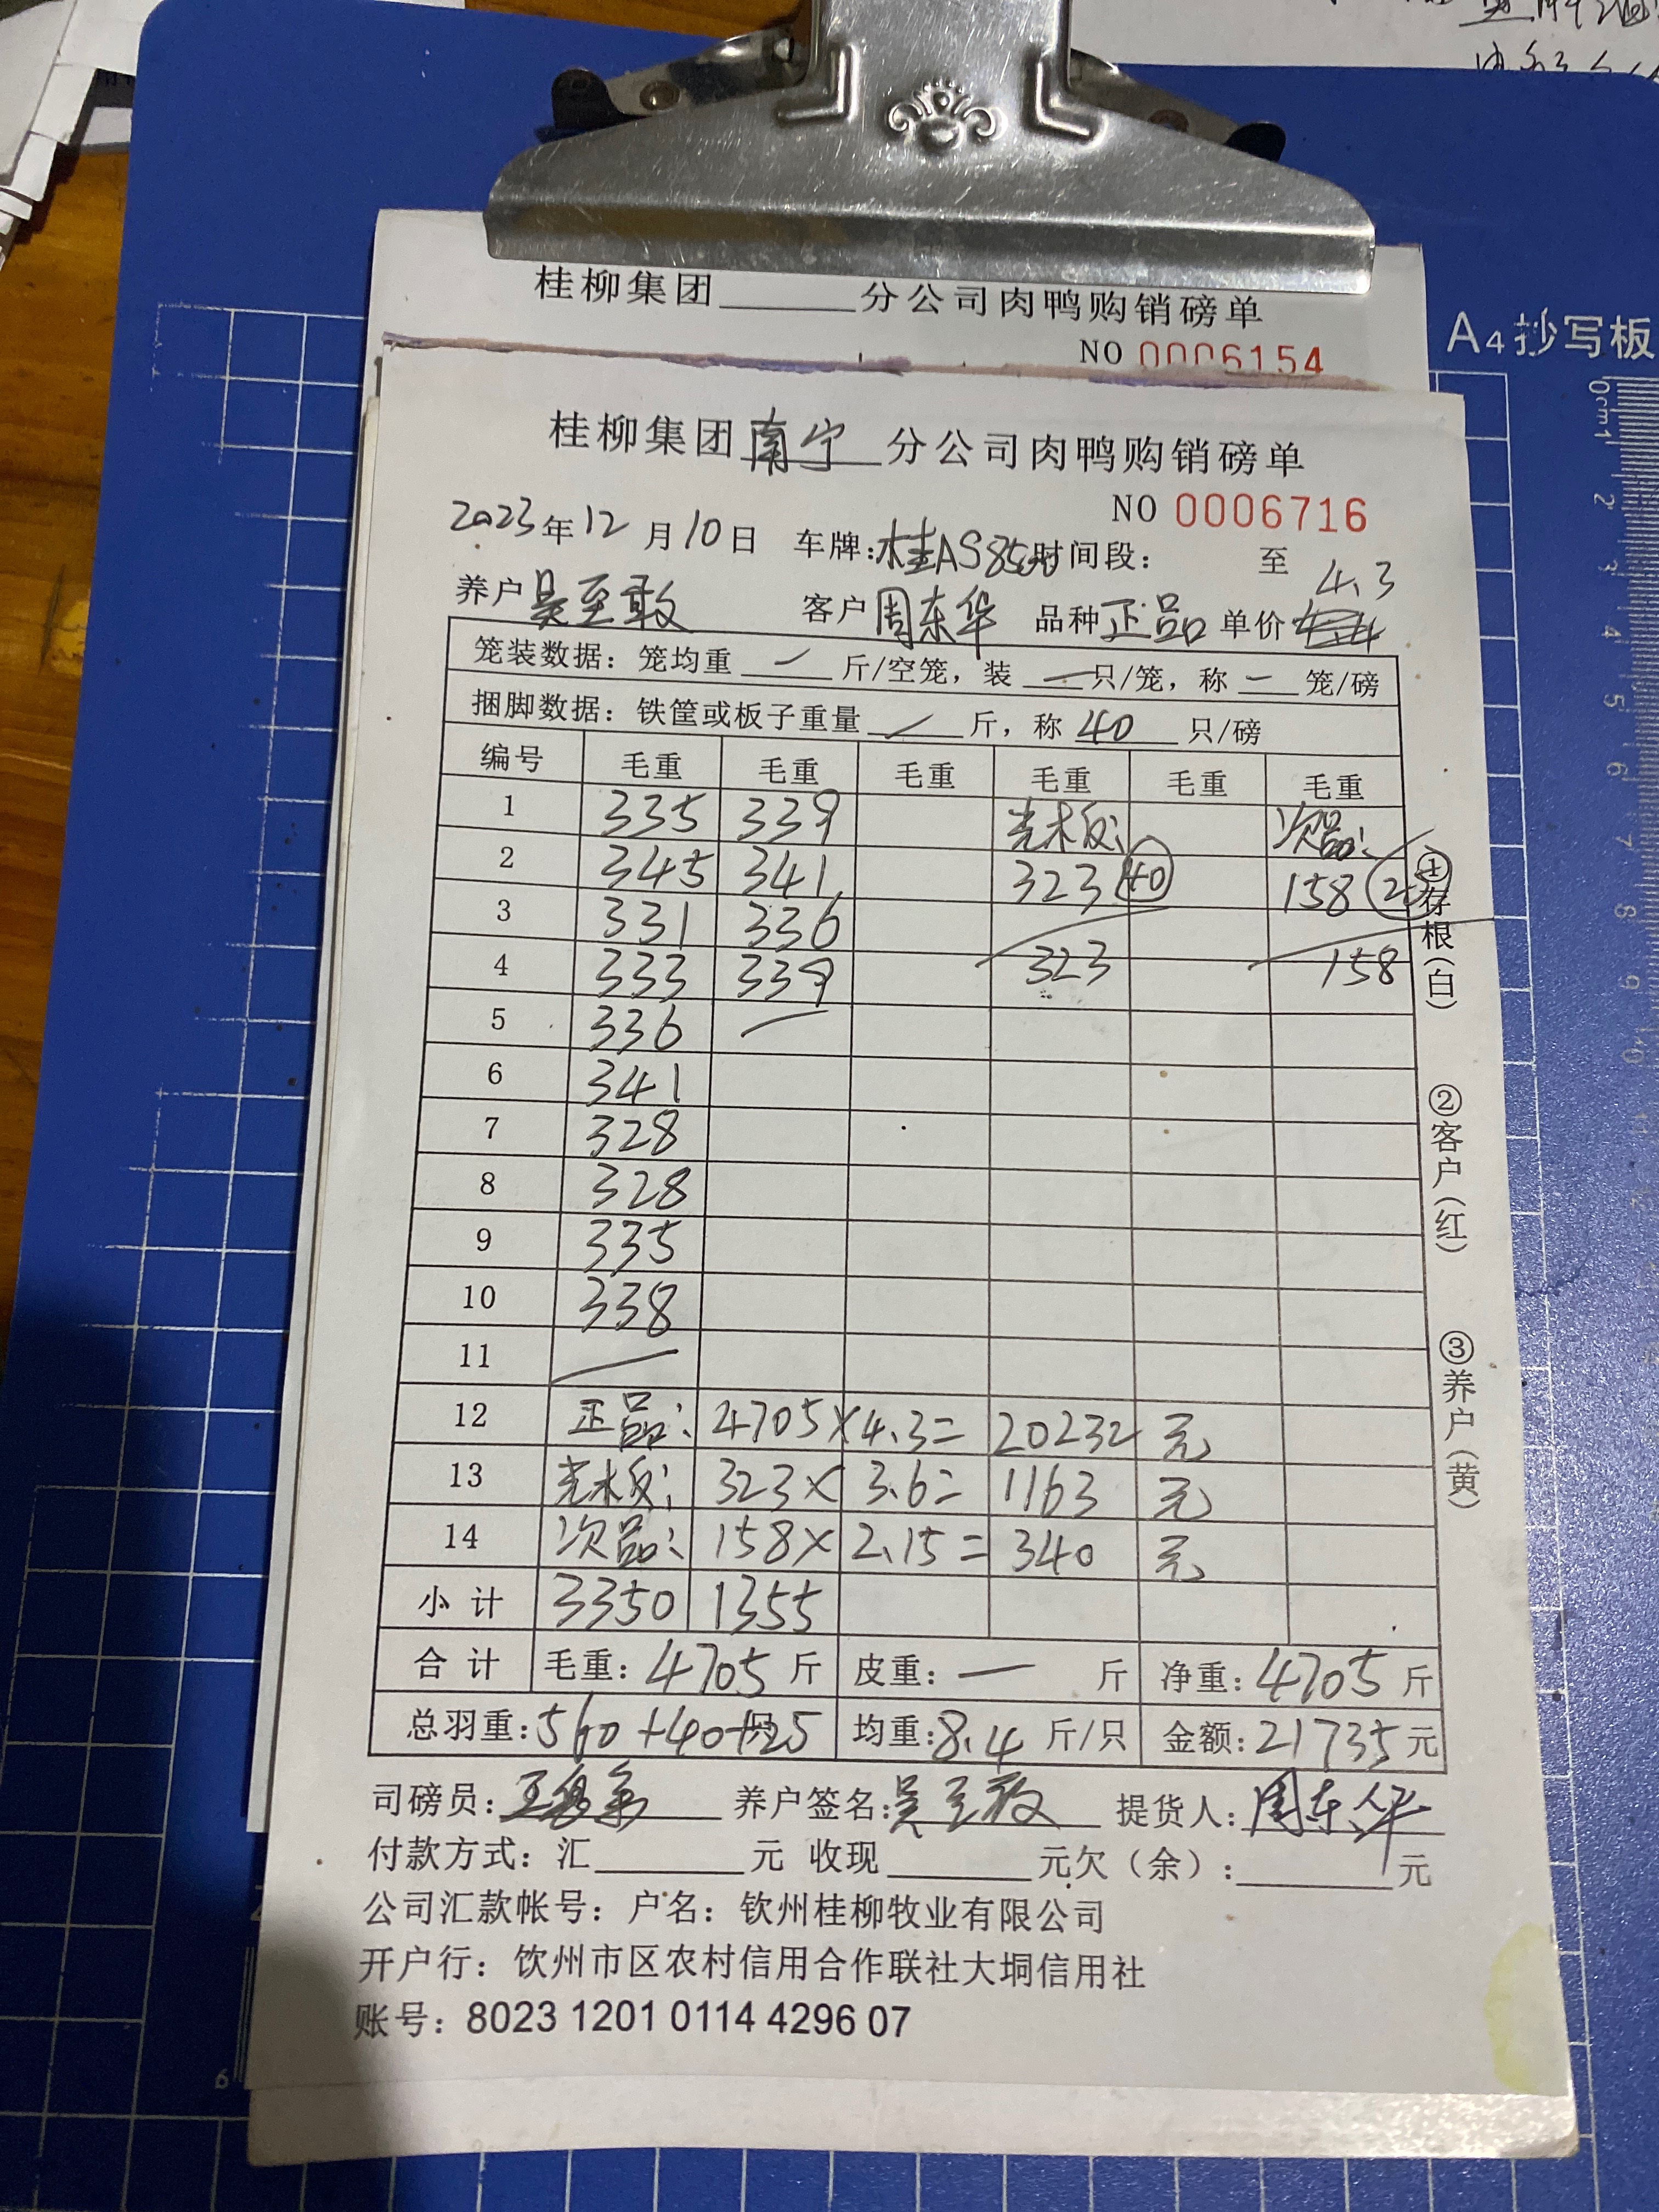 桂柳集团______分公司肉鸭购销磅单
NO 0006154
A4抄写板
桂柳集团南宁分公司肉鸭购销磅单
NO 0006716
2023年12月10日 车牌:桂AS85 时间段: 至
养户 吴至敢 客户 周东华 品种 正品 单价 4.3
笼装数据: 笼均重 — 斤/空笼, 装 — 只/笼, 称 — 笼/磅
捆脚数据: 铁筐或板子重量 — 斤, 称 40 只/磅
编号 毛重 毛重 毛重 毛重 毛重 毛重
1 335 339 光木板: 次品:
2 345 341 323 40 158 25
3 331 336
4 333 339 323 158
5 336 —
6 341
7 328
8 328
9 335
10 338
11 —
12 正品: 4705×4.3= 20232 元
13 光木板: 323× 3.6= 1163 元
14 次品: 158× 2.15= 340 元
小计 3350 1355
合计 毛重: 4705 斤 皮重: — 斤 净重: 4705 斤
总羽重: 560+40+25 均重: 8.4 斤/只 金额: 21735 元
司磅员: 养户签名: 吴至敢 提货人: 周东华
付款方式: 汇______元 收现______元欠(余):______元
公司汇款帐号: 户名: 钦州桂柳牧业有限公司
开户行: 饮州市区农村信用合作联社大垌信用社
账号: 8023 1201 0114 4296 07
①存根(白)
②客户(红)
③养户(黄)
0cm1 2 3 4 5 6 7 8 9 10
6